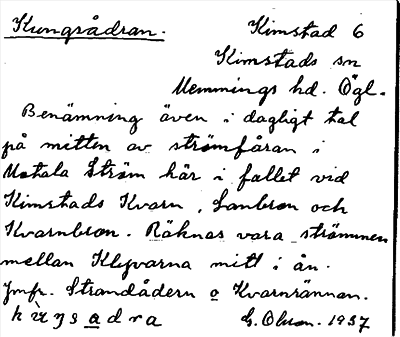 Kungsådran. Kimstad 6
Kimstads sn
Memmings hd. Ögl.
Benämning även i dagligt tal
på mitten av strömfåran i
Motala Ström här i fallet vid
Kimstads Kvarn, Lanbron och
Kvarnbron. Räknas vara strömmen
mellan Klyvarna mitt i ån.
Jmfr. Strandådern o Kvarnrännan.
G. Olson. 1937